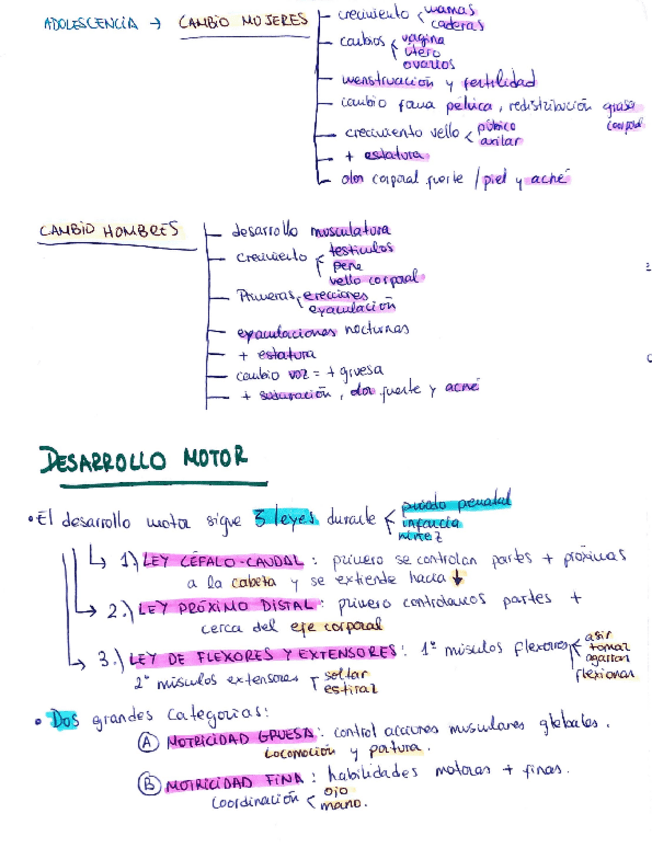 ADOLESCENCIA → CAMBIO MUJERES
crecimiento < mamas
caderas
cambios < vagina
útero
ovarios
menstruación y fertilidad
cambio forma pélvica, redistribución grasa
corporal
crecimiento vello < púbico
axilar
+ estatura
olor corporal fuerte / piel y acné
CAMBIO HOMBRES
desarrollo musculatura
crecimiento < testículos
pene
vello corporal
Primeras erecciones
eyaculación
eyaculaciones nocturnas
+ estatura
cambio voz = + gruesa
+ sudoración, olor fuerte y acné
DESARROLLO MOTOR
• El desarrollo motor sigue 3 leyes durante < periodo prenatal
infancia
niñez
1) LEY CÉFALO-CAUDAL: primero se controlan partes + próximas
a la cabeza y se extiende hacia ↓
2.) LEY PRÓXIMO DISTAL: primero controlamos partes +
cerca del eje corporal
3.) LEY DE FLEXORES Y EXTENSORES: 1º músculos flexores < asir
tomar
agarrar
flexionar
2º músculos extensores < soltar
estirar
• Dos grandes categorías:
A MOTRICIDAD GRUESA: control acciones musculares globales.
Locomoción y postura.
B MOTRICIDAD FINA: habilidades motoras + finas.
Coordinación < ojo
mano.